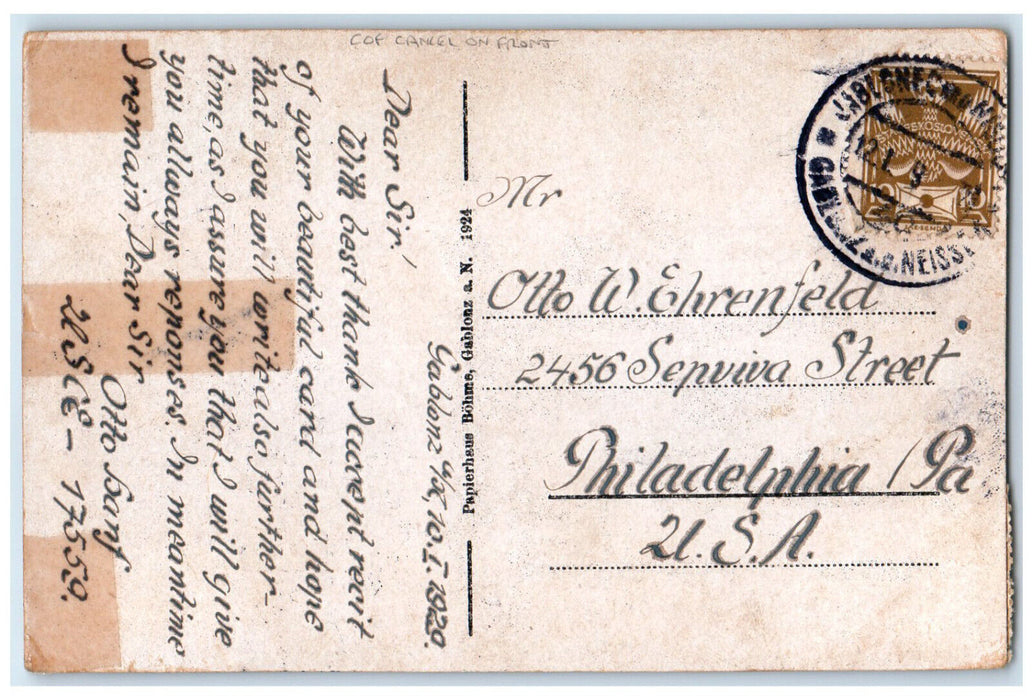 COF CANCEL ON FRONT
Gablonz 10. I. 1929.
Dear Sir!
With best thank I
of your beautiful card and hope
that you will write also further-
time, as I assure you that I will give
you allways reponses. In meantime
I remain, Dear Sir
Otto
17559.
Papierhaus Böhme, Gablonz a. N. 1924
Mr
Otto W. Ehrenfeld
2456 Sepviva Street
Philadelphia / Pa
U. S. A.
JABLONEC
12. I.
NEISSE